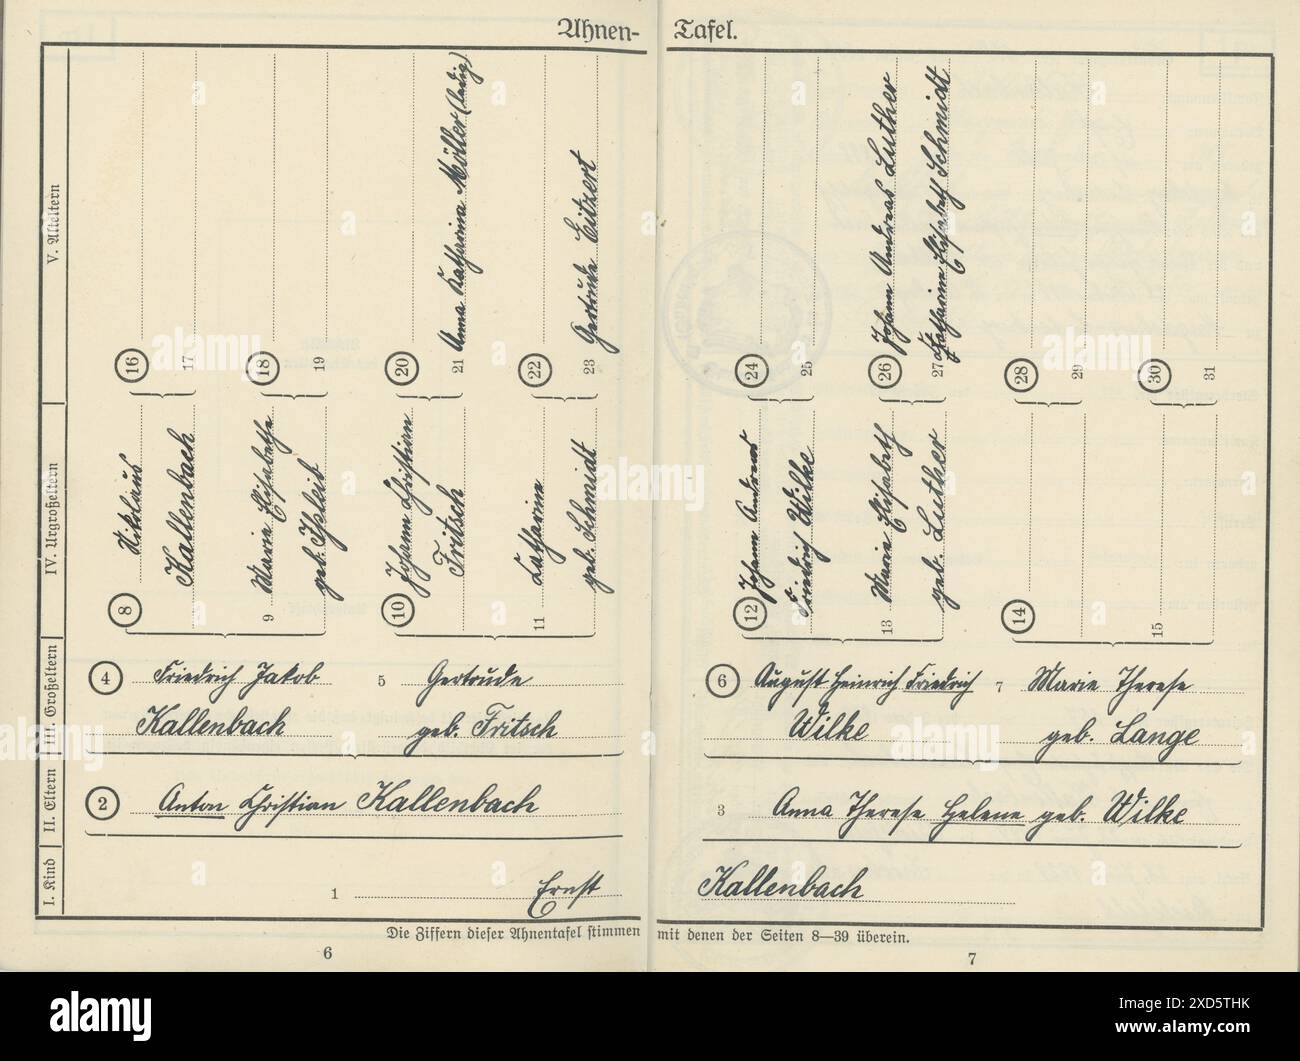 Ahnen-
Tafel.
V. Alteltern
IV. Urgroßeltern
III. Großeltern
II. Eltern
I. Kind
16
17
18
19
20
21 Anna Katharina Möller (ledig)
22
23 Gertrude Eitzert
24
25
26 Johann Andreas Luther
27 Katharina Elisabeth Schmidt
28
29
30
31
8 Nikolaus
Kallenbach
9 Marie Elisabethe
geb. Ihleib
10 Johann Christian
Fritsch
11 Katharina
geb. Schmidt
12 Johann Andreas
Friedrich Wilke
13 Marie Elisabeth
geb. Luther
14
15
4 Friedrich Jakob
Kallenbach
5 Gertrude
geb. Fritsch
6 August Heinrich Friedrich
Wilke
7 Marie Therese
geb. Lange
2 Anton Christian Kallenbach
3 Anna Therese Helene geb. Wilke
1 Ernst
Kallenbach
Die Ziffern dieser Ahnentafel stimmen
mit denen der Seiten 8—39 überein.
6
7
alamy
Image ID: 2XD5THK
www.alamy.com